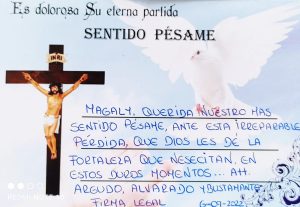 Es dolorosa Su eterna partida
SENTIDO PÉSAME
INRI
MAGALY, QUERIDA NUESTRO MAS
SENTIDO PÉSAME, ANTE ESTA IRREPARABLE
PÉRDIDA, QUE DIOS LES DÉ LA
FORTALEZA QUE NESECITAN, EN
ESTOS DUROS MOMENTOS... Att.
ARGUDO, ALVARADO Y BUSTAMANTE
FIRMA LEGAL 6-09-2022